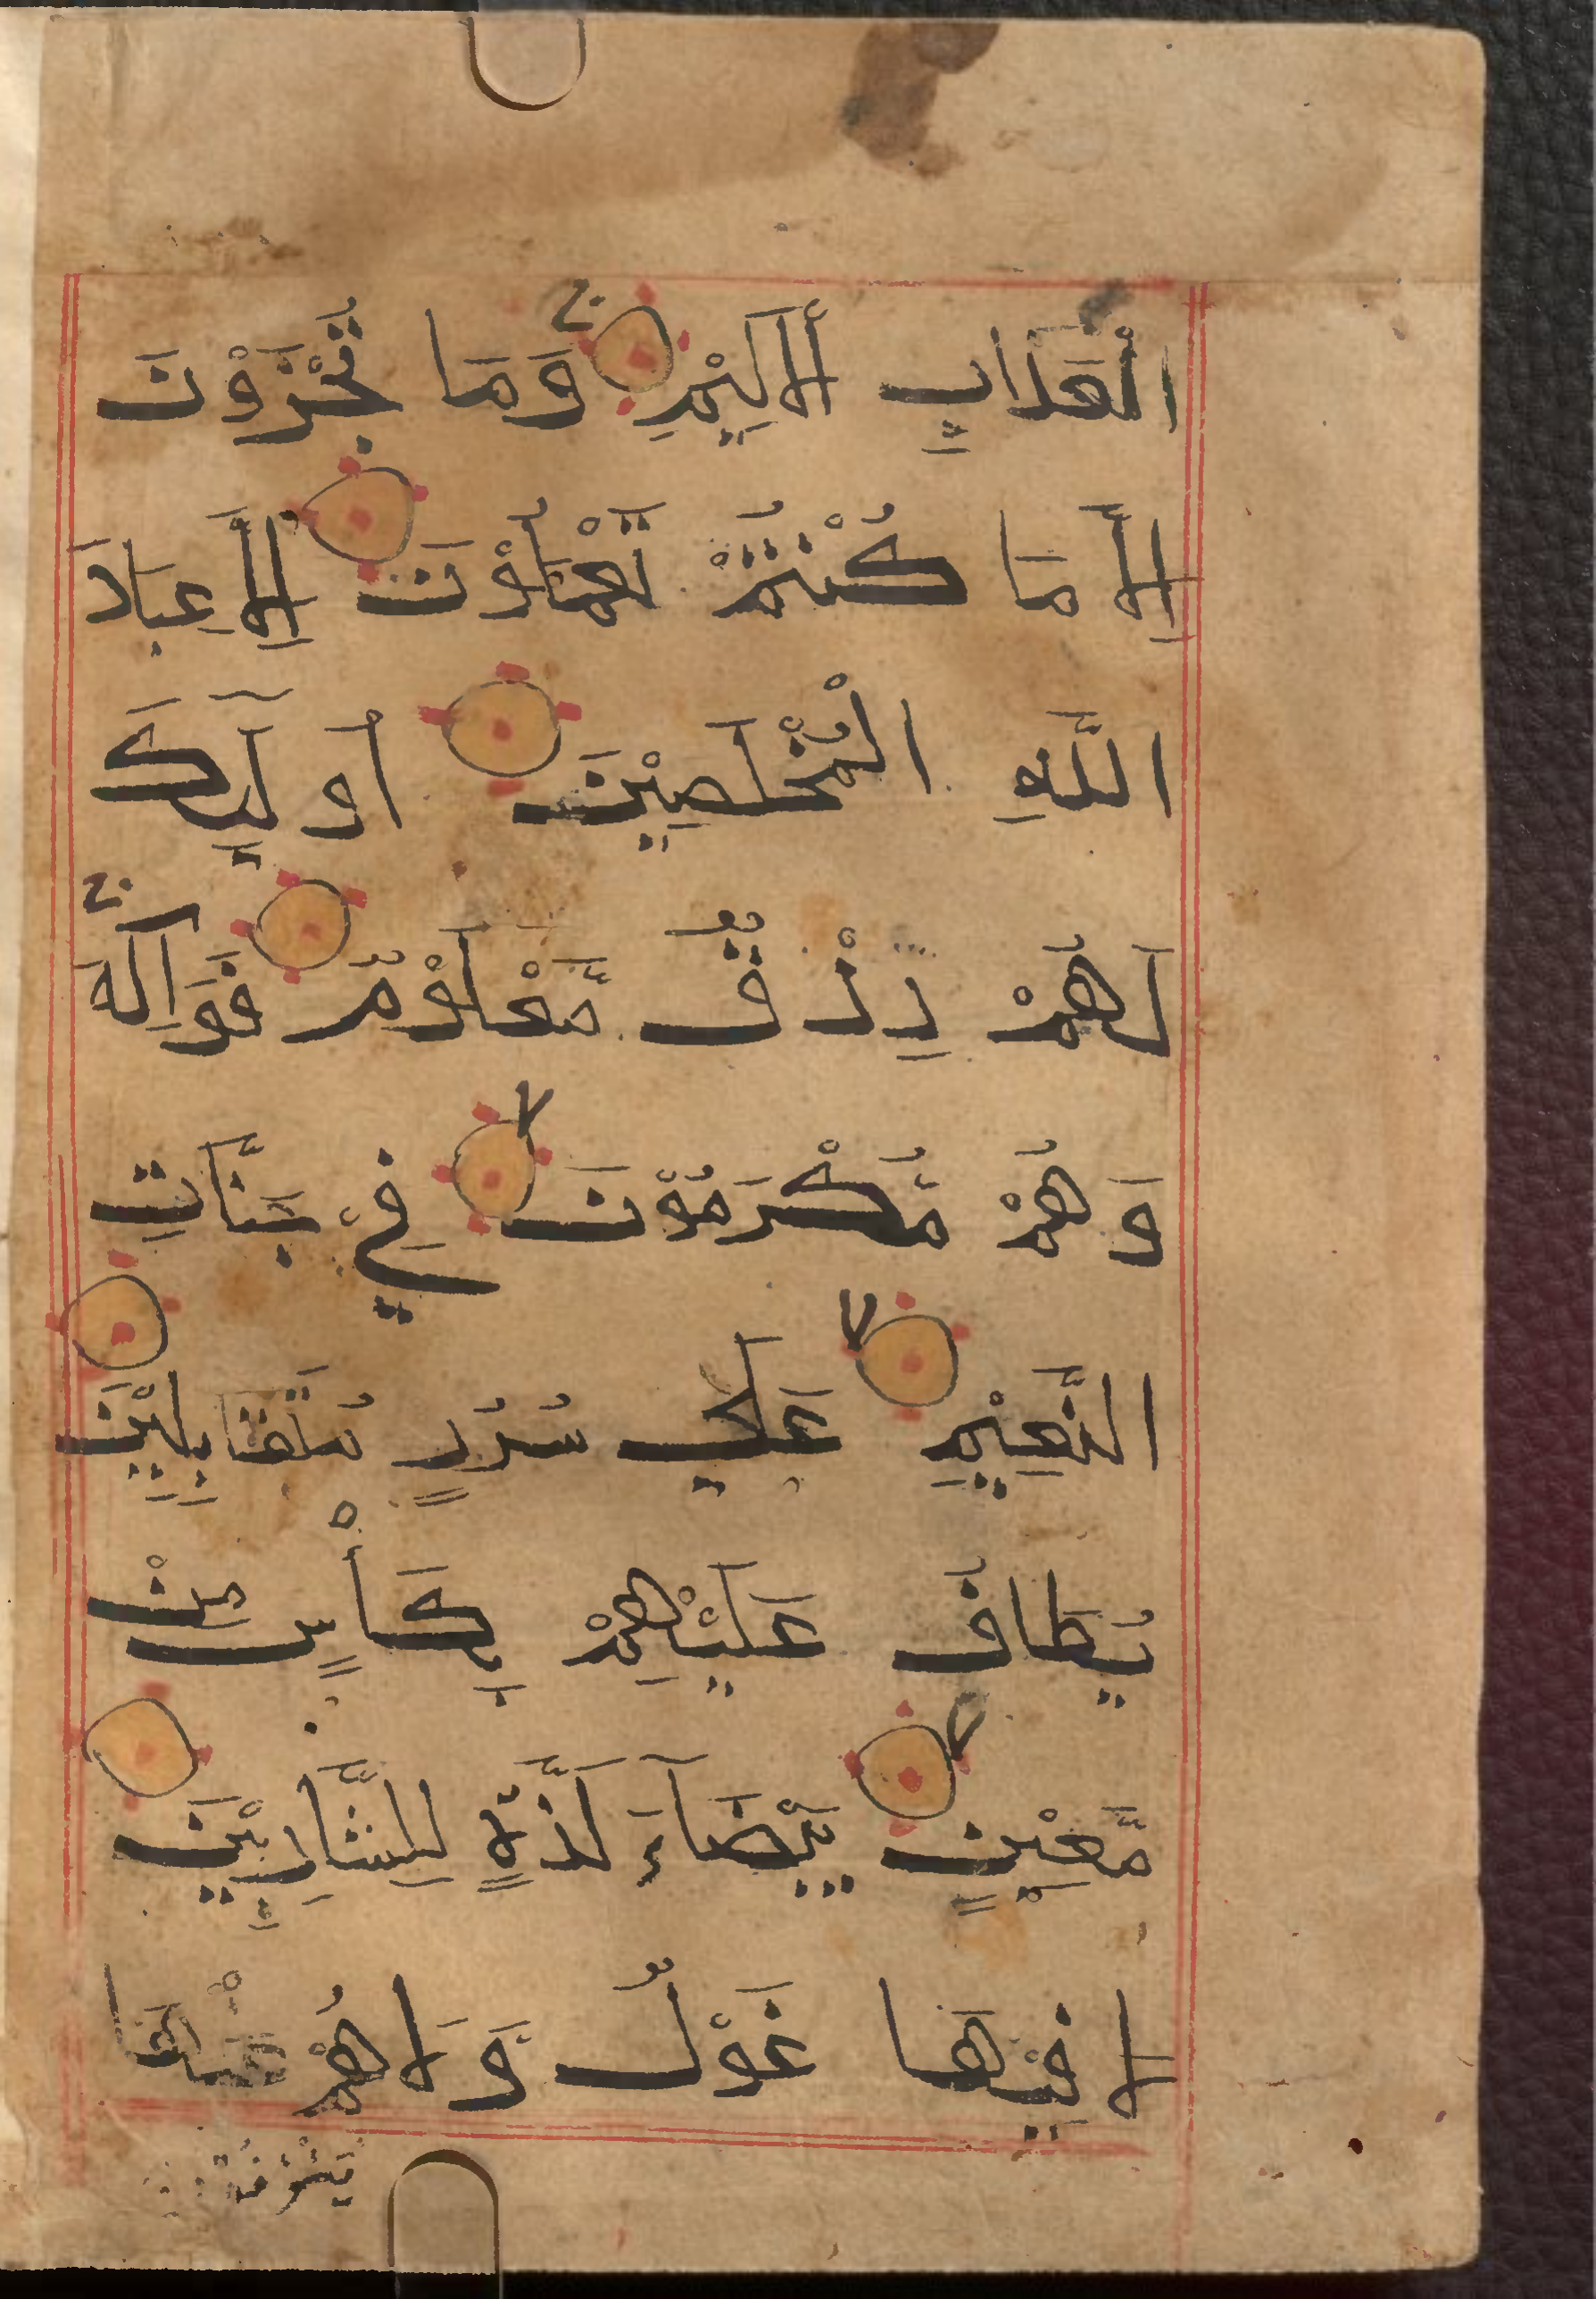 الْعَذَابِ الْأَلِيْمِ ۝ وَمَا تُجْزَوْنَ
إِلَّا مَا كُنْتُمْ تَعْمَلُوْنَ ۝ إِلَّا عِبَادَ
اللَّهِ الْمُخْلَصِيْنَ ۝ أُولَٓئِكَ
لَهُمْ رِزْقٌ مَّعْلُوْمٌ ۝ فَوَاكِهُ
وَهُمْ مُّكْرَمُوْنَ ۝ فِيْ جَنَّاتِ
النَّعِيْمِ ۝ عَلَي سُرُرٍ مُتَقَابِلِيْنَ ۝
يُطَافُ عَلَيْهِمْ بِكَأْسٍ مِنْ
مَّعِيْنٍ ۝ بَيْضَآءَ لَذَّةٍ لِلشَّارِبِيْنَ ۝
لَا فِيْهَا غَوْلٌ وَّلَا هُمْ عَنْهَا
يُنْزَفُوْنَ